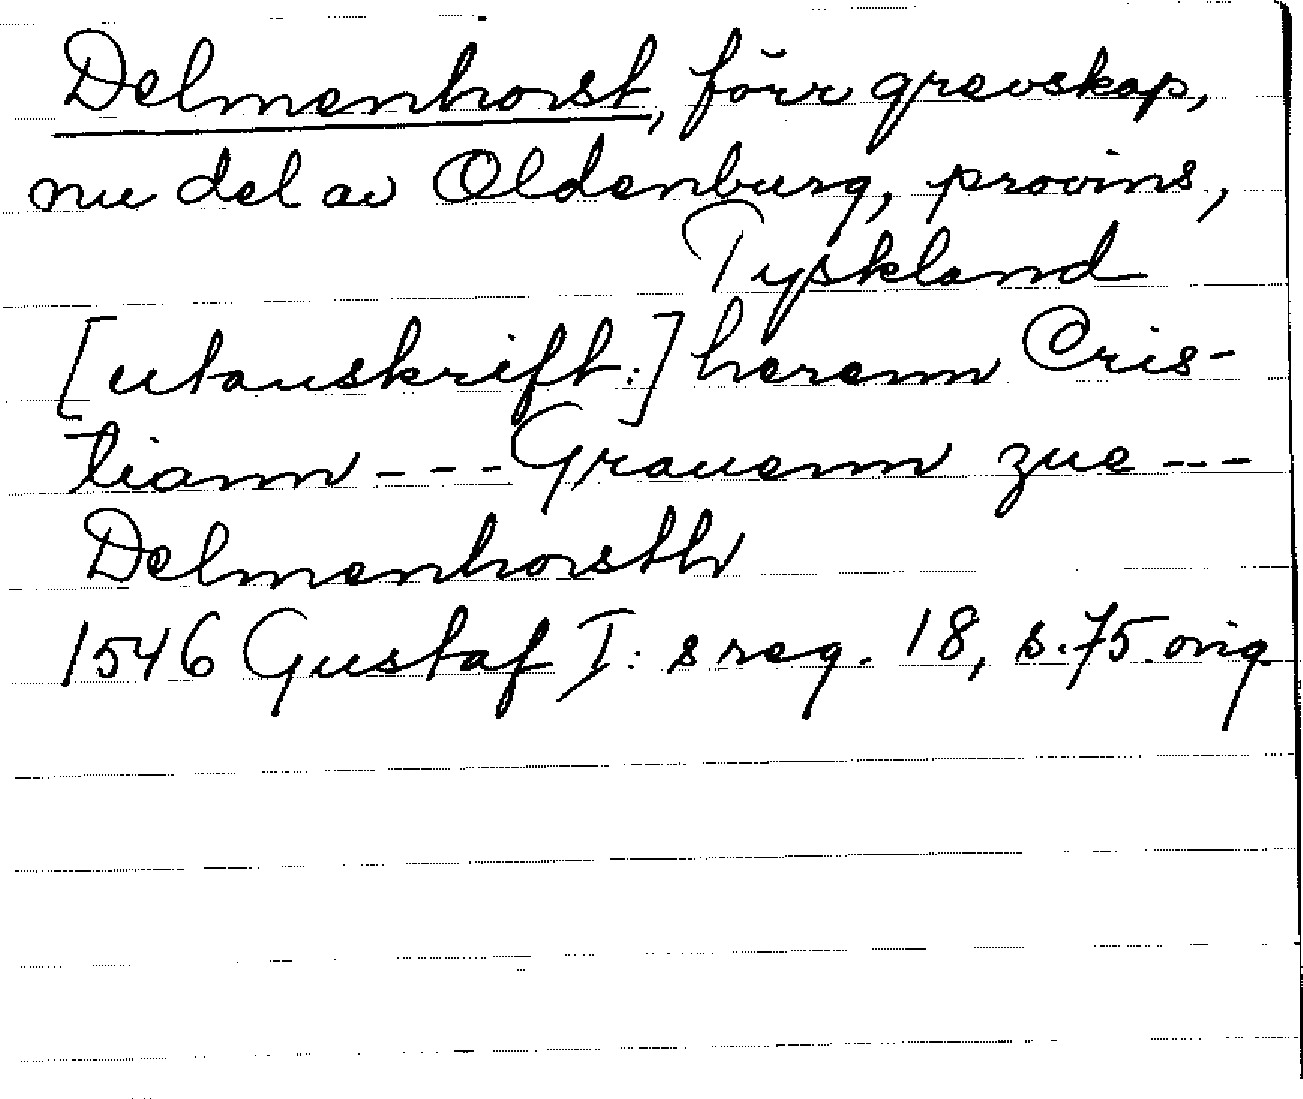 Delmenhorst, förr grevskap,
nu del av Oldenburg, provins,
Tyskland
[utanskrift:] herenn Cris-
tiann --- Grauenn zue ---
Delmenhorsth
1546 Gustaf I:s reg. 18, s. 75. orig